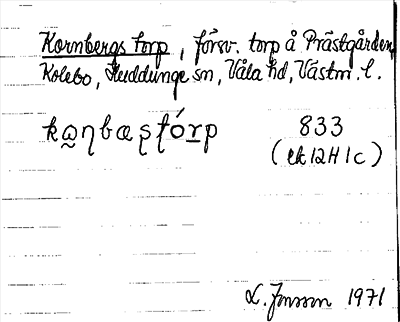 Kornbergs torp, försv. torp å Prästgården
Kolebo, Huddunge sn, Våla hd, Västm. l.
833
(ek 12H 1c)
L. Jonsson 1971